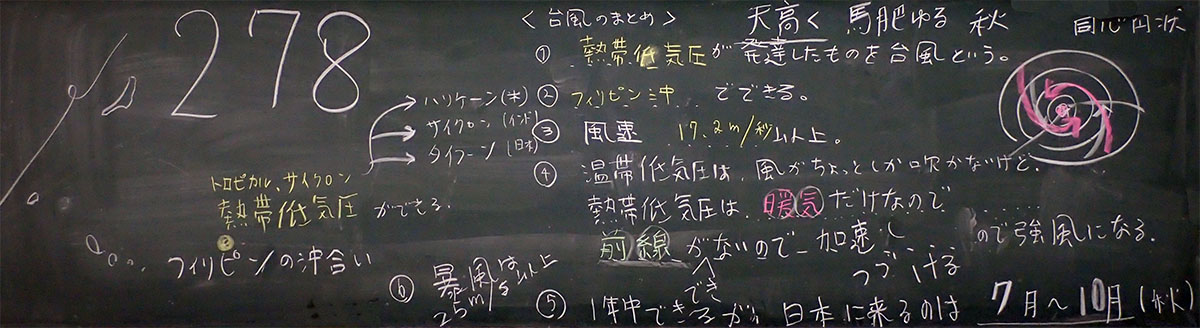 278
<台風のまとめ> 天高く 馬肥ゆる 秋 同心円状
① 熱帯低気圧が発達したものを台風という。
ハリケーン(米) ② フィリピン沖 でできる。
サイクロン (インド) ③ 風速 17.2m/秒以上。
タイフーン (日本)
④ 温帯低気圧は、風がちょっとしか吹かないけど、
トロピカル、サイクロン
熱帯低気圧 ができる。
熱帯低気圧は 暖気だけなので
前線がないので 加速し
つづける ので強風になる。
でき
フィリピンの沖合い
⑥ 暴風は
25m/s以上
⑤ 1年中できるが、日本に来るのは 7月〜10月 (秋)